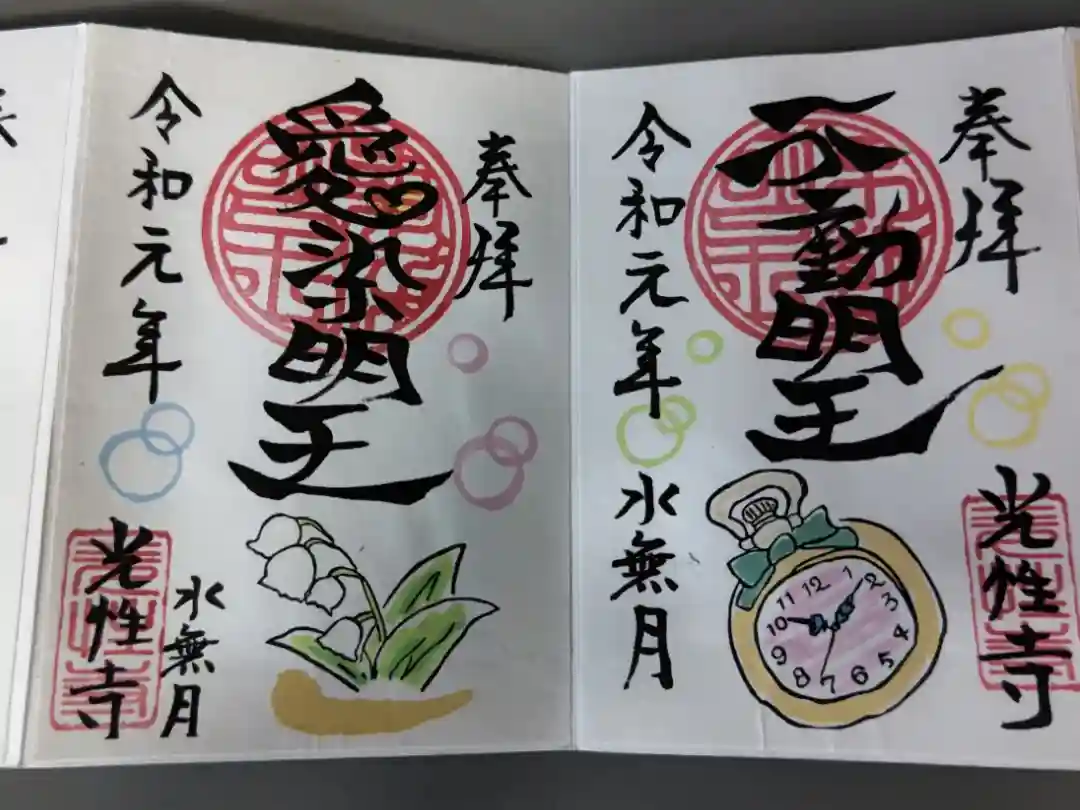 奉拝
不動明王
令和元年
水無月
光性寺
12
1
2
3
4
5
6
7
8
9
10
11
奉拝
愛染明王
令和元年
水無月
光性寺